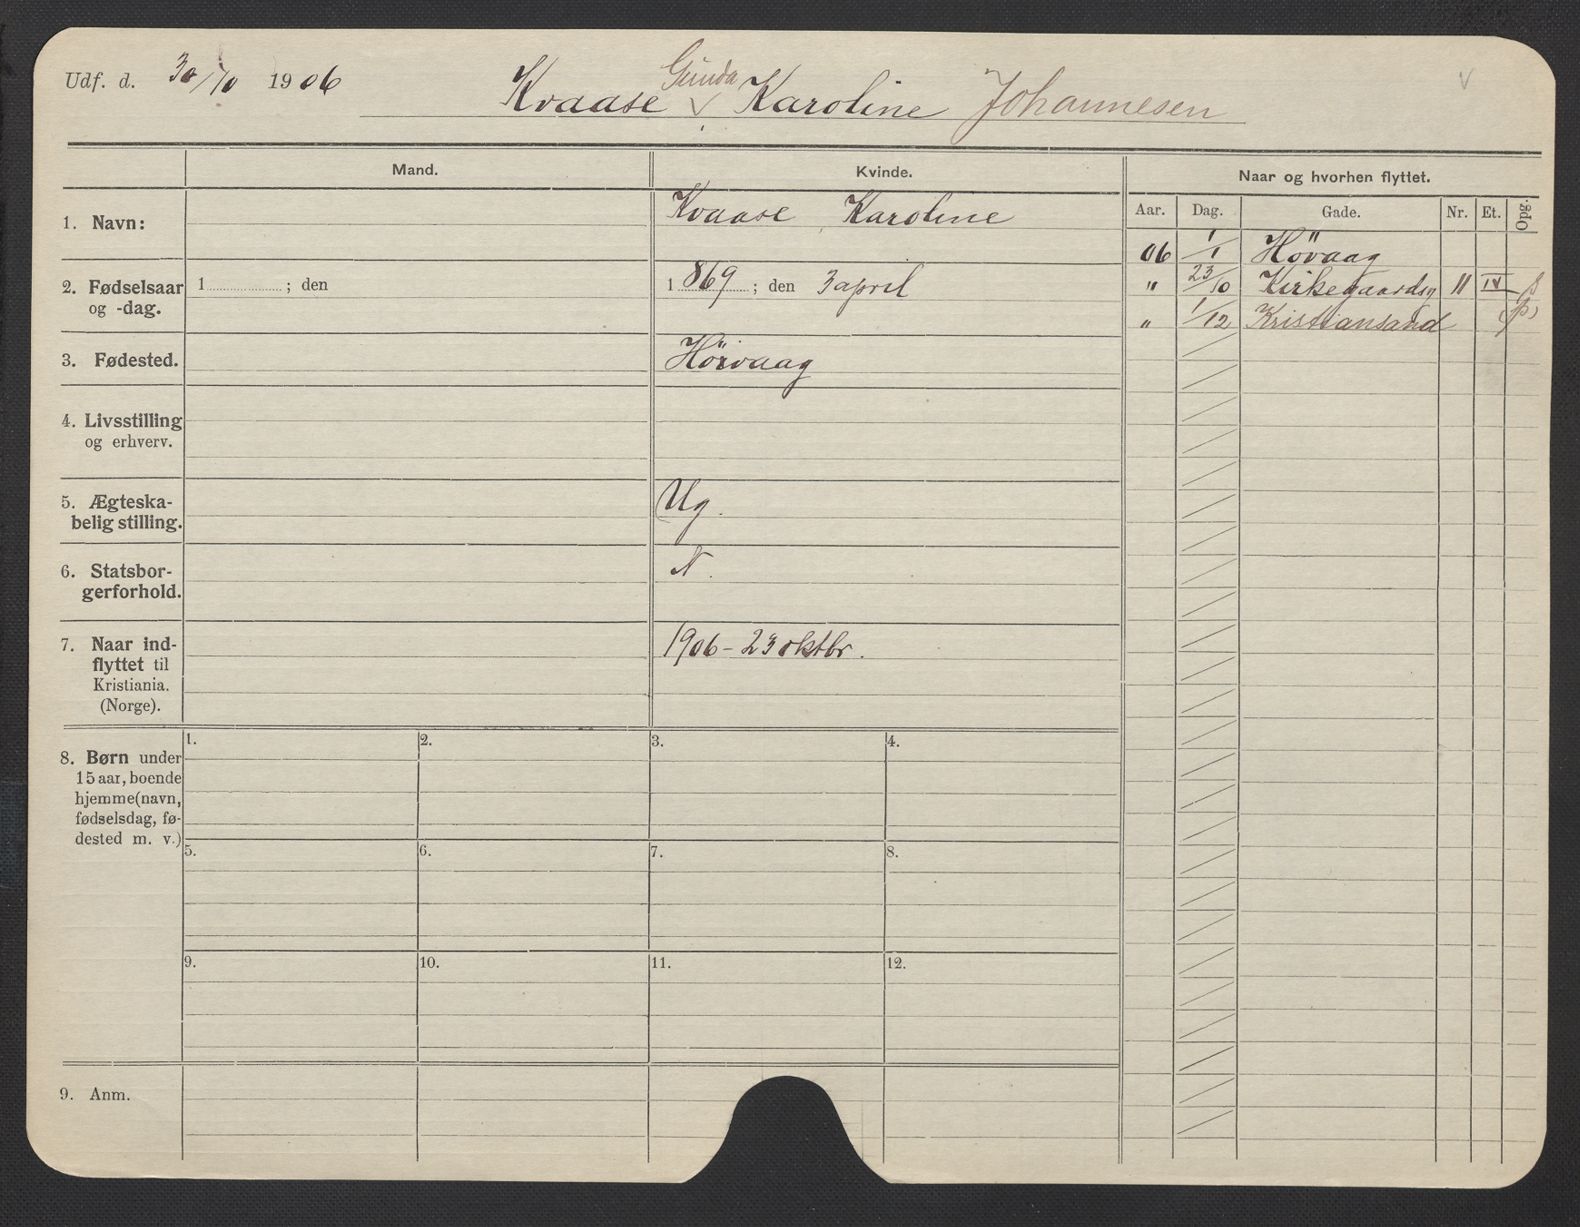 Udf. d. 30/10 1906
Gunda
Kvaase √ Karoline Johannesen
√
Mand.
Kvinde.
Naar og hvorhen flyttet.
Aar. Dag. Gade. Nr. Et. Opg.
1. Navn:
Kvaase Karoline
06 1/1 Hövaag
2. Fødselsaar
og -dag.
1 ; den
1869 ; den 3 april
" 23/10 Kirkegaardsg 11 IV
" 1/12 Kristiansand
3. Fødested.
Hörvaag
4. Livsstilling
og erhverv.
5. Ægteska-
belig stilling.
Ug.
6. Statsbor-
gerforhold.
N.
7. Naar ind-
flyttet til
Kristiania.
(Norge).
1906 - 23 oktbr.
8. Børn under
15 aar, boende
hjemme (navn,
fødselsdag, fø-
dested m. v.)
1. 2. 3. 4.
5. 6. 7. 8.
9. 10. 11. 12.
9. Anm.